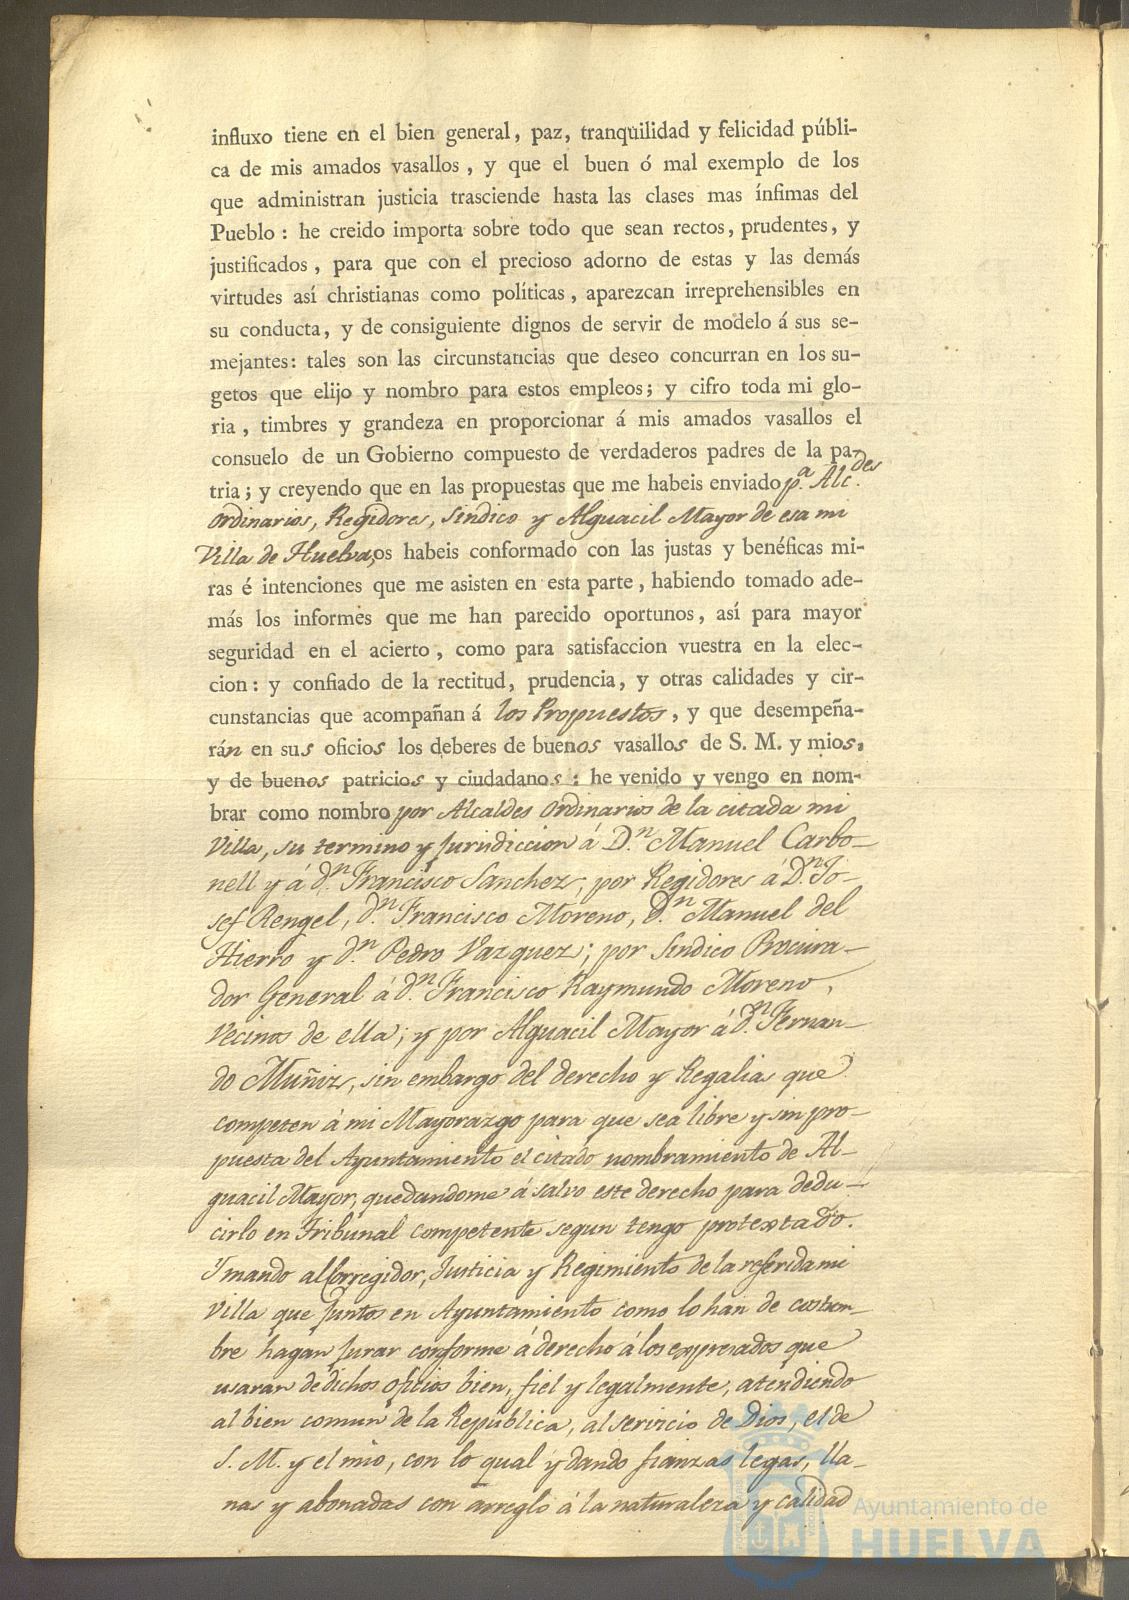 influxo tiene en el bien general, paz, tranquilidad y felicidad públi-
ca de mis amados vasallos, y que el buen ó mal exemplo de los
que administran justicia trasciende hasta las clases mas ínfimas del
Pueblo: he creido importa sobre todo que sean rectos, prudentes, y
justificados, para que con el precioso adorno de estas y las demás
virtudes así christianas como políticas, aparezcan irreprehensibles en
su conducta, y de consiguiente dignos de servir de modelo á sus se-
mejantes: tales son las circunstancias que deseo concurran en los su-
getos que elijo y nombro para estos empleos; y cifro toda mi glo-
ria, timbres y grandeza en proporcionar á mis amados vasallos el
consuelo de un Gobierno compuesto de verdaderos padres de la pa-
tria; y creyendo que en las propuestas que me habeis enviado p.ª Alc.des
ordinarios, Regidores, Sindico y Alguacil Mayor de esa mi
Villa de Huelva, os habeis conformado con las justas y benéficas mi-
ras é intenciones que me asisten en esta parte, habiendo tomado ade-
más los informes que me han parecido oportunos, así para mayor
seguridad en el acierto, como para satisfaccion vuestra en la elec-
cion: y confiado de la rectitud, prudencia, y otras calidades y cir-
cunstancias que acompañan á los Propuestos, y que desempeña-
rán en sus oficios los deberes de buenos vasallos de S. M. y mios,
y de buenos patricios y ciudadanos: he venido y vengo en nom-
brar como nombro por Alcaldes ordinarios de la citada mi
Villa, su termino y Jurisdiccion á D.n Manuel Carbo-
nell y á d.n Francisco Sanchez; por Regidores á D.n Jo-
sef Rengel, d.n Francisco Moreno, D.n Manuel del
Hierro y d.n Pedro Vazquez; por Sindico Procura-
dor General á d.n Francisco Raymundo Moreno,
Vecinos de ella; y por Alguacil Mayor á d.n Fernan-
do Muñiz, sin embargo del derecho y Regalias que
competen á mi Mayorazgo para que sea libre y sin pro-
puesta del Ayuntamiento el citado nombramiento de Al-
guacil Mayor, quedandome á salvo este derecho para dedu-
cirlo en Tribunal competente segun tengo protextado.
Y mando al Corregidor, Justicia y Regimiento de la referida mi
Villa que Juntos en Ayuntamiento como lo han de costum-
bre hagan Jurar conforme á derecho á los expresados que
usaran de dichos oficios bien, fiel y legalmente, atendiendo
al bien comun de la Republica, al servicio de Dios, el de
S. M. y el mio, con lo qual y dando fianzas legas, lla-
nas y abonadas con arreglo á la naturaleza y calidad
Ayuntamiento de
HUELVA